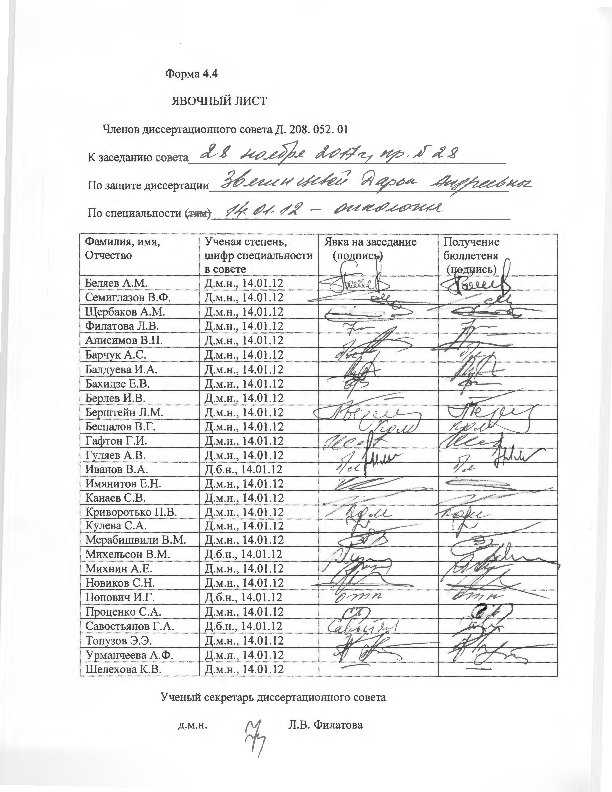 Форма 4.4
ЯВОЧНЫЙ ЛИСТ
Членов диссертационного совета Д. 208. 052. 01
К заседанию совета 28 ноября 2017 г, пр. № 28
По защите диссертации Звягинцевой Дарьи Андреевны
По специальности (ям) 14.01.12 – онкология
Фамилия, имя, Ученая степень, Явка на заседание Получение
Отчество шифр специальности (подпись) бюллетеня
в совете (подпись)
Беляев А.М. Д.м.н., 14.01.12
Семиглазов В.Ф. Д.м.н., 14.01.12
Щербаков А.М. Д.м.н., 14.01.12
Филатова Л.В. Д.м.н., 14.01.12
Анисимов В.Н. Д.м.н., 14.01.12
Барчук А.С. Д.м.н., 14.01.12
Балдуева И.А. Д.м.н., 14.01.12
Бахидзе Е.В. Д.м.н., 14.01.12
Берлев И.В. Д.м.н., 14.01.12
Берштейн Л.М. Д.м.н., 14.01.12
Беспалов В.Г. Д.м.н., 14.01.12
Гафтон Г.И. Д.м.н., 14.01.12
Гуляев А.В. Д.м.н., 14.01.12
Иванов В.А. Д.б.н., 14.01.12
Имянитов Е.Н. Д.м.н., 14.01.12
Канаев С.В. Д.м.н., 14.01.12
Криворотько П.В. Д.м.н., 14.01.12
Кулева С.А. Д.м.н., 14.01.12
Мерабишвили В.М. Д.м.н., 14.01.12
Михельсон В.М. Д.б.н., 14.01.12
Михнин А.Е. Д.м.н., 14.01.12
Новиков С.Н. Д.м.н., 14.01.12
Попович И.Г. Д.б.н., 14.01.12
Проценко С.А. Д.м.н., 14.01.12
Савостьянов Г.А. Д.б.н., 14.01.12
Топузов Э.Э. Д.м.н., 14.01.12
Урманчеева А.Ф. Д.м.н., 14.01.12
Шелехова К.В. Д.м.н., 14.01.12
Ученый секретарь диссертационного совета
д.м.н. Л.В. Филатова